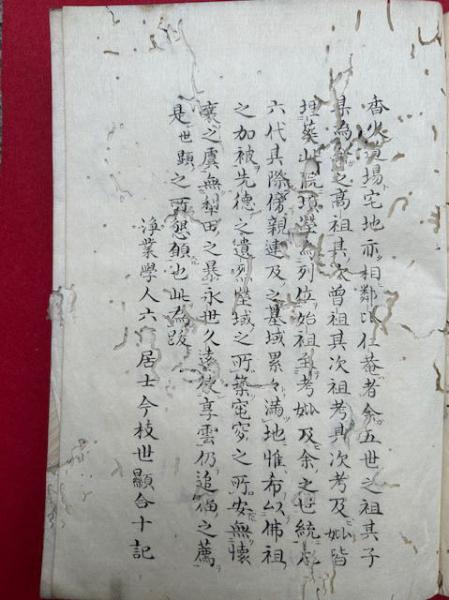 香火道場宅地亦相鄰以仁菴者余五世之祖其子
某為余之高祖其次曾祖其次祖考其次考及妣皆
埋葬此院墳塋為列位始祖至考妣及余之世統
六代其際傍親連及之墓域累々滿地惟希以佛祖
之加被先德之遺烈塋域之所築窀穸之所安無懷
襄之虞無犁田之暴永世久遠彼享雲仍追
之薦
是世顯之所懇願也此為跋
淨業學人六 居士今枝世顯合十記